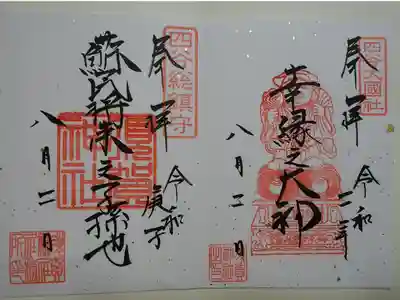 四大國社
奉拝
令和二年
幸縁之大神
八月二日
四谷総鎮守
奉拝
令和庚子
蘇民将来之子孫也
須賀神社
八月二日